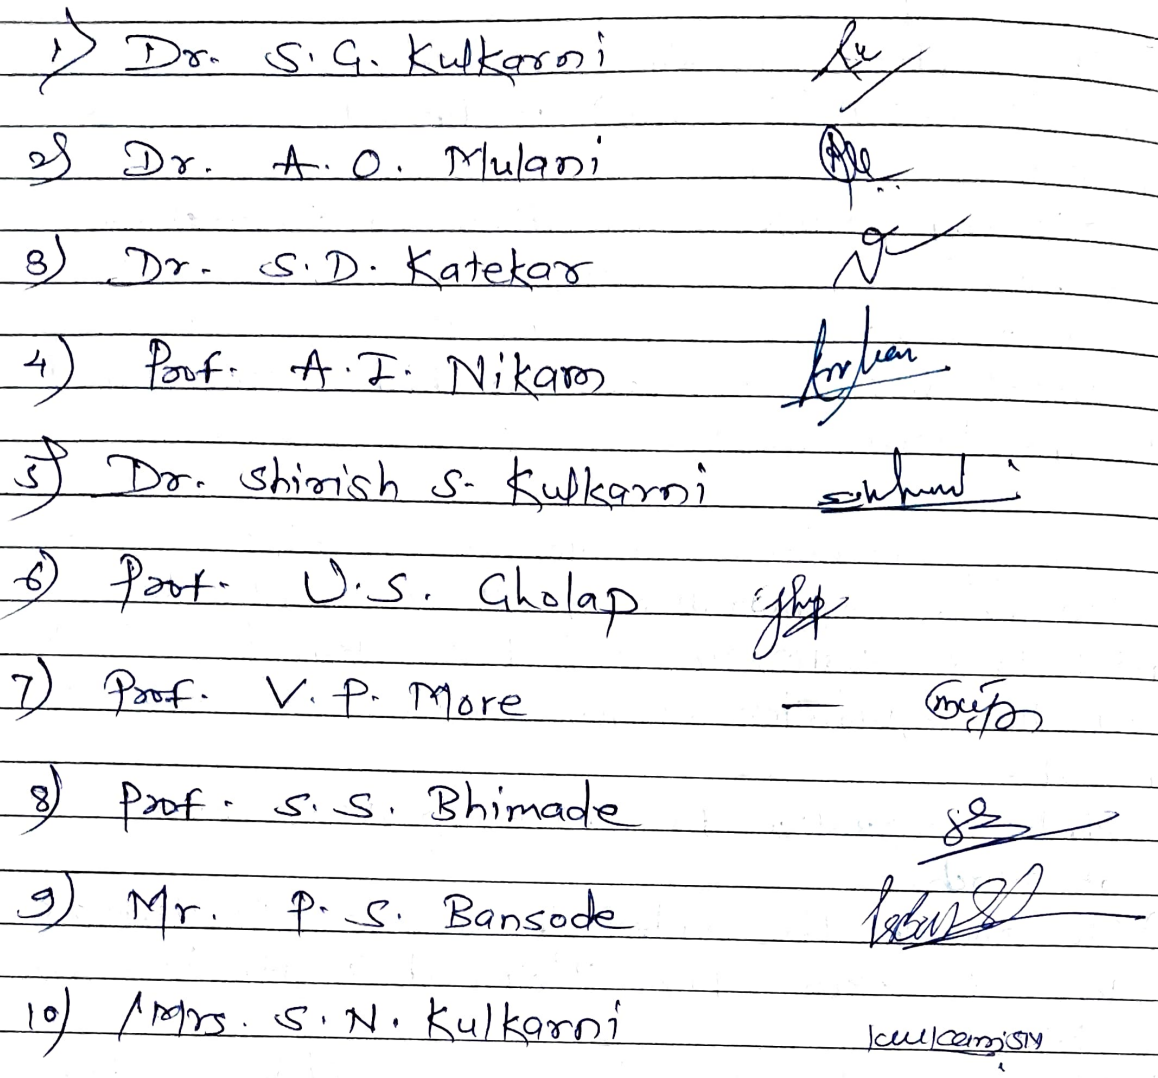 1) Dr. S. G. Kulkarni
2) Dr. A. O. Mulani
3) Dr. S. D. Katekar
4) Prof. A. I. Nikam
5) Dr. Shirish S. Kulkarni
6) Prof. U. S. Gholap
7) Prof. V. P. More —
8) Prof. S. S. Bhimade
9) Mr. P. S. Bansode
10) Mrs. S. N. Kulkarni KulkarniSN